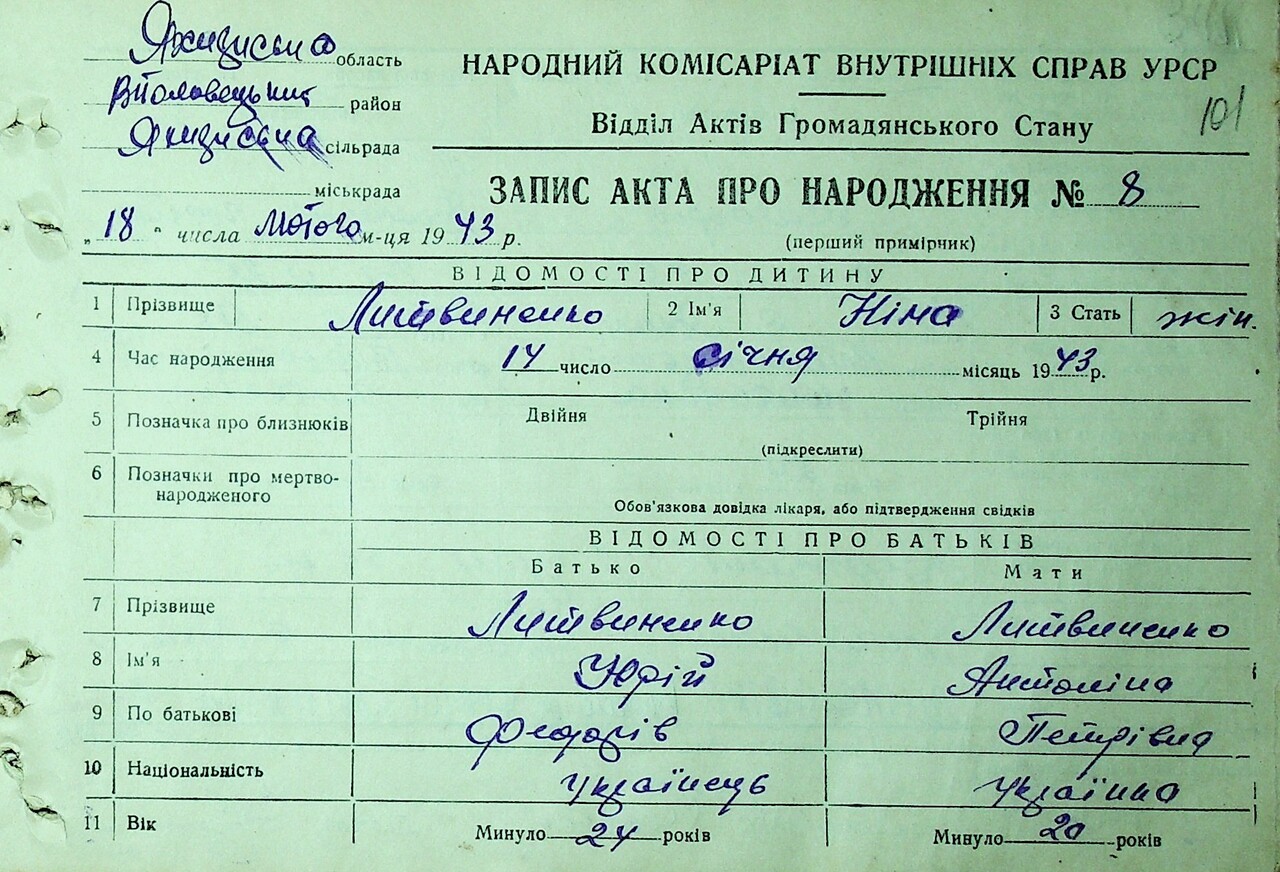 область
район
сільрада
міськрада
НАРОДНИЙ КОМІСАРІАТ ВНУТРІШНІХ СПРАВ УРСР
101
Відділ Актів Громадянського Стану
ЗАПИС АКТА ПРО НАРОДЖЕННЯ № 8
(перший примірник)
„ 18 " числа Лютого м-ця 1943 р.
ВІДОМОСТІ ПРО ДИТИНУ
1 Прізвище Литвиненко 2 Ім'я Ніна 3 Стать жін.
4 Час народження 14 число січня місяць 1943 р.
5 Позначка про близнюків Двійня Трійня
(підкреслити)
6 Позначки про мертво-
народженого
Обов'язкова довідка лікаря, або підтвердження свідків
ВІДОМОСТІ ПРО БАТЬКІВ
Батько Мати
7 Прізвище Литвиненко Литвиненко
8 Ім'я Юрій Антоліна
9 По батькові Федорів Петрівна
10 Національність українець українка
11 Вік Минуло 24 років Минуло 20 років